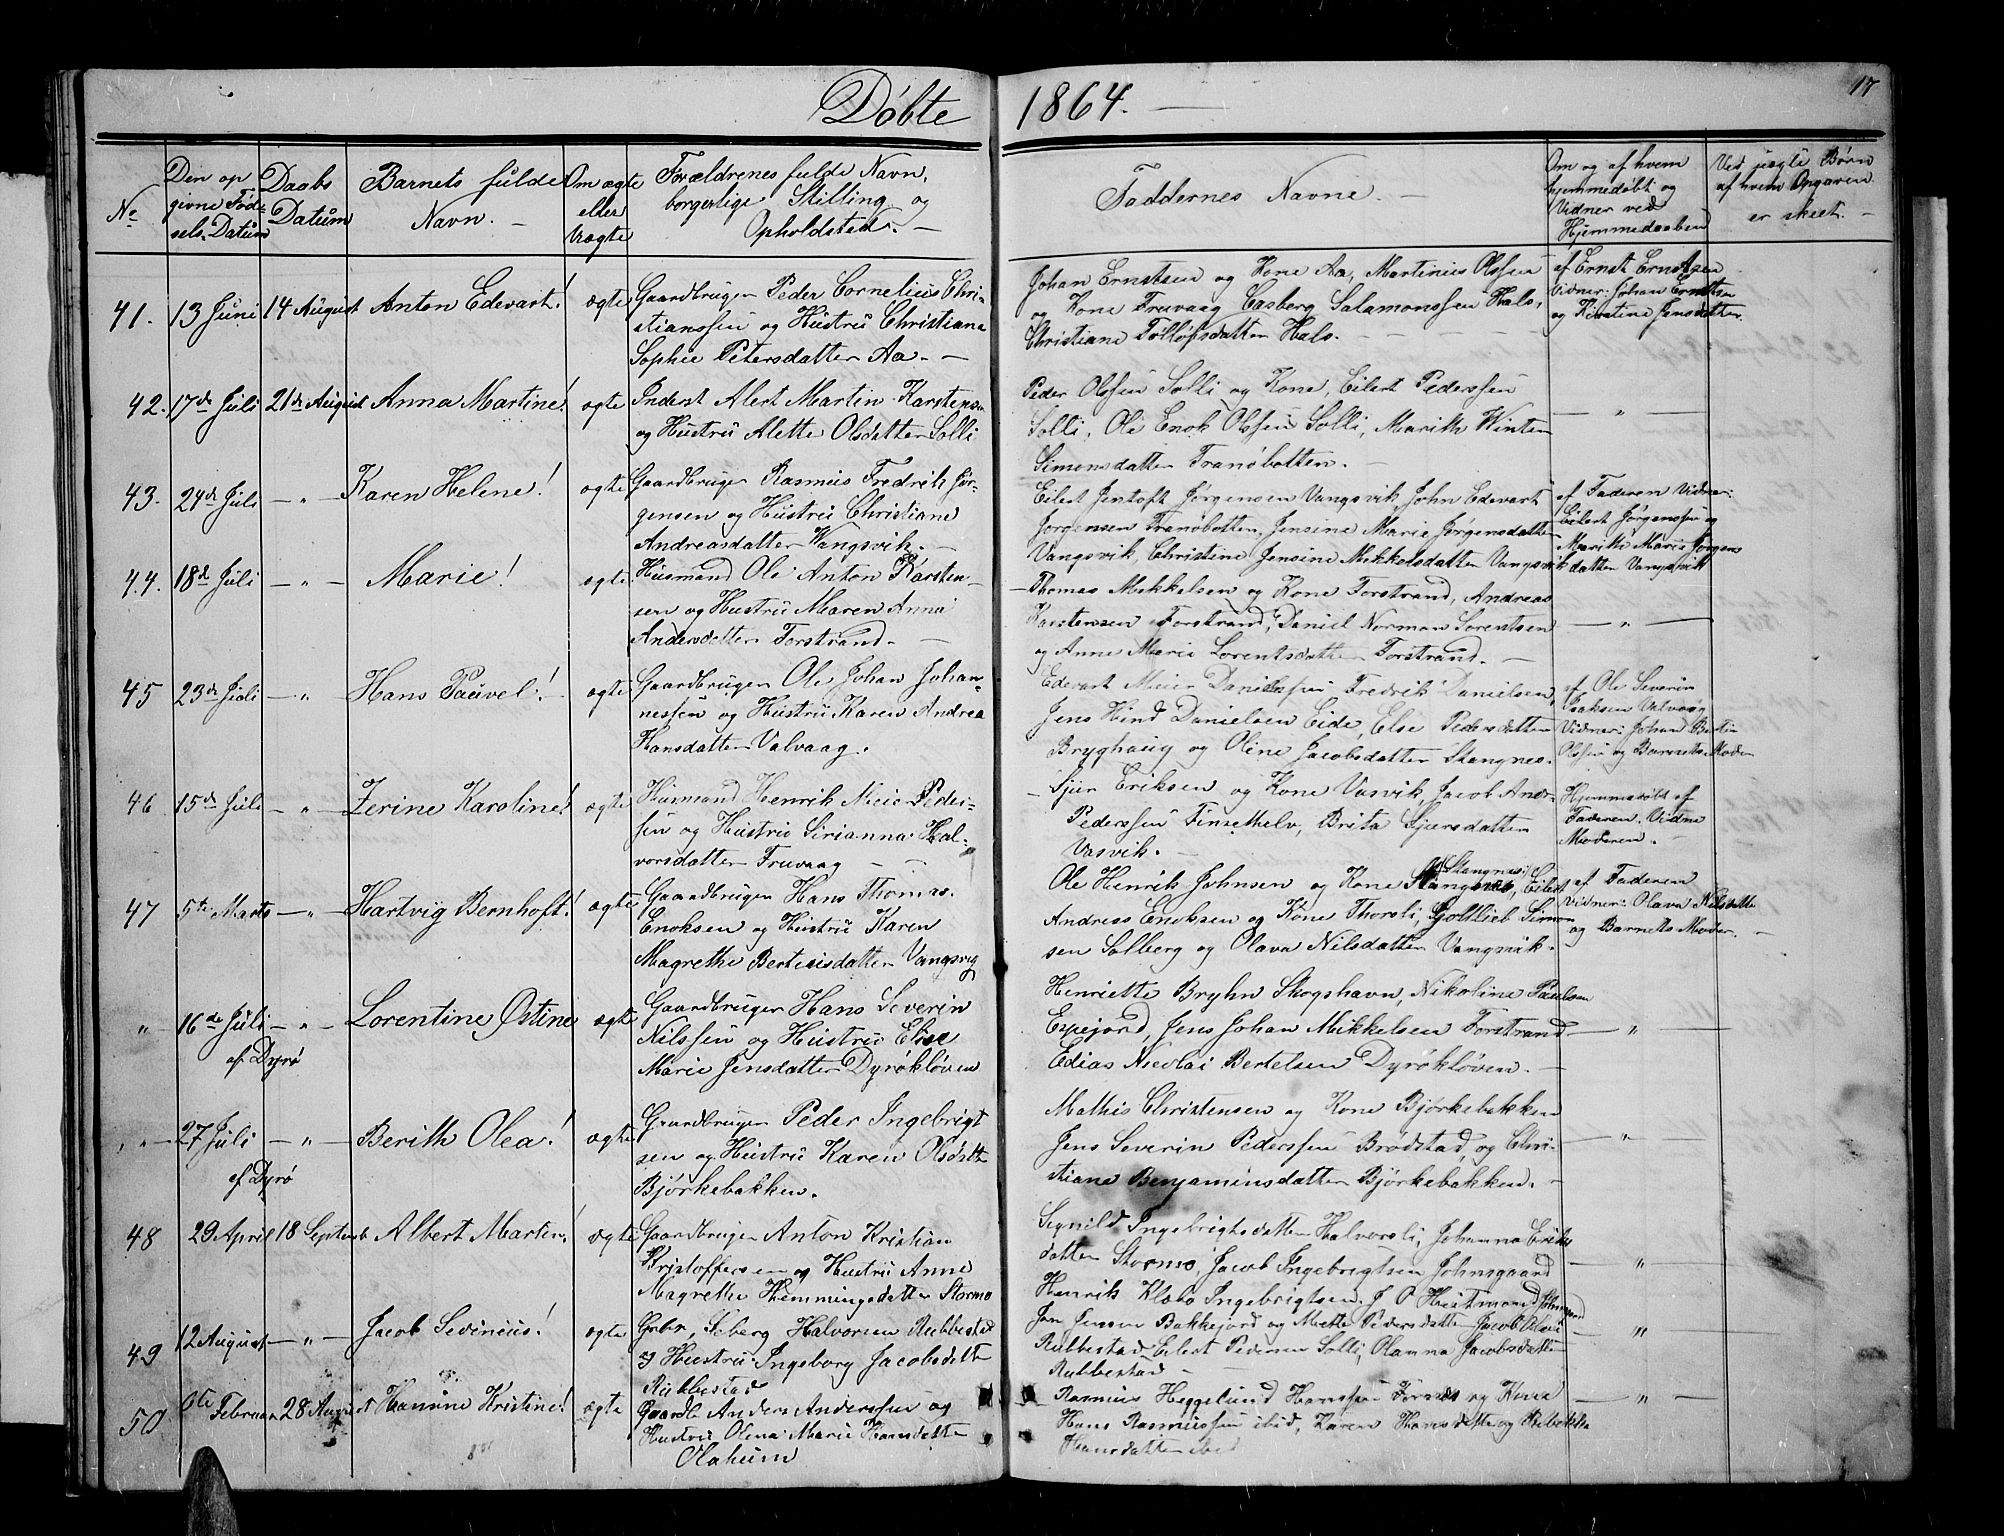 Døbte 1864.
17
No
Den op
givne Fød-
sels. Datum
Daabs
Datum
Barnets fulde
Navn.
Om ægte
eller
Uægte
Forældrenes fulde Navn,
borgerlige Stilling og
Opholdsted.
Faddernes Navne.
Om og af hvem
hjemmedøbt og
Vidner ved
Hjemmedaaben
Ved uægte Børn
af hvem Opgaven
er skeet.
41. 13 Juni 14 August Anton Edevart! ægte
Gaardbruger Peder Cornelius Chri-
stianssen og Hustru Christiana
Sophie Petersdatter Aa.
Johan Ernstsen og Kone Aa, Martinus Olssen
og Kone Fruvaag Casberg Salamonssen Hals,
Christiane Tølløfsdatter Hals.
af Ernst Ernstsen
Vidner: Johan Ernstsen
og Kirstine Jensdatter.
42. 17de Juli 21de August Anna Martine! ægte
Inderst Alert Martin Karstensen
og Hustru Alette Olsdatter Solli
Peder Olssen Solli og Kone, Eilert Pederssen
Solli, Ole Enok Olssen Solli, Marith Winter
Simonsdatter Tranøbotten.
— " —
43. 24de Juli — " — Karen Helene! ægte
Gaardbruger Rasmus Fredrik Jør-
gensen og Hustru Christiane
Andreasdatter Vangsvik.
Eilert Jentoft Jørgensen Vangsvik, John Edevart
Jørgensen Tranøbotten, Jensine Marie Jørgensdatter
Vangsvik, Christine Jensine Mikkelsdatter Vangsvik
af Faderen Vidner:
Eilert Jørgenssen og
Marith Marie Jørgens
datter Vangsvik
44. 18de Juli — " — Marie! ægte
Husmand Ole Anton Karsten-
sen og Hustru Maren Anna
Andersdatter Forstrand.
Thomas Mikkelsen og Kone Forstrand, Andreas
Karstensen Forstrand, Daniel Norman Lorentsen
og Anne Marie Lorentsdatter Forstrand.
— " —
45 23de Juli — " Hans Pauvel! ægte
Gaardbruger Ole Johan Johan-
nessen og Hustru Karen Andrea
Hansdatter Valvaag.
Edevart Meier Danielssen Fredrik Danielsen,
Jens Hind Danielsen Eide, Else Pedersdatter
Bryghaug og Oline Jacobsdatter Stangnes.
af Ole Severin
Isaksen Valvaag
Vidner: Johan Bertin
Olssen og Barnets Moder
46 15de Juli — " — Zerine Karoline! ægte
Husmand Henrik Meier Peder-
sen og Hustru Sirianna Hal-
vorsdatter Fruvaag
Sjur Eriksen og Kone Vasvik, Jacob Andr.
Pederssen Finsethelv, Brita Sjursdatter
Vasvik.
Hjemmedøbt af
Faderen. Vidne
Moderen.
47 5te Marts — " — Hartvig Bernhoft! ægte
Gaardbruger Hans Thomas.
Enoksen og Hustru Karen
Magrethe Bertiusdatter Vangsvig
Ole Henrik Johnsen og Kone Stangnes, Eilert
Andreas Enoksen og Kone Thorsli, Gottlieb Simon
sen Solberg og Olava Nilsdatter Vangsvik.
af Faderen
Vidner: Olava Nilsdatter
og Barnets Moder.
" 16de Juli — " — Lorentine Østine ægte
af Dyrø
Gaardbruger Hans Severin
Nilssen og Hustru Elise
Marie Jensdatter Dyrøkløven
Henriette Bryhn Skogshavn, Nikoline Paulsen
Espejord, Jens Johan Mikkelsen Forstrand
Edias Nicolai Bertelsen Dyrøkløven.
— " —
" 27 Juli — " — Berith Olea! ægte
af Dyrø
Gaardbruger Peder Ingebrigt
sen og Hustru Karen Olsdatt
Bjørkebakken.
Mathis Christensen og Kone Bjørkebakken
Jens Severin Pederssen Brødstad, og Chri-
stiane Benjaminsdatter Bjørkebakken.
— " —
48 29 April 18 Septemb Albert Martin! ægte
Gaardbruger Anton Kristian
Kristoffersen og Hustru Anne
Magrethe Hemmingsdatter Stormo
Segnild Ingebrigtsdatter Halvorsli, Johanna Eriks
datter Stormo, Jacob Ingebrigtsen Johnsgaard
Henrik Klæbo Ingebrigtsen, J. O. Heitmand
— " —
49 12 August — " — Jacob Sevinius! ægte
Grbr. Seberg Halvorsen Rubbestad
og Hustru Ingeborg Jacobsdatt
Rubbestad
Jon Jensen Bakkejord og Mette Pedersdatter Jacob Olsen
Rubbestad, Eilert Pedersen Solli, Olamna Jacobsdatter
Rubbestad
"
50 Februar 28 August Hanine Kristine! ægte
Gaardb Anders Anderssen og
Hustru Olena Marie Hansdatter
Olaheim
Rasmus Heggelund Hanssen Forness og Kone
Hans Rasmussen ibid, Karen Hansdatter og
Hansdatter ibid
— " —